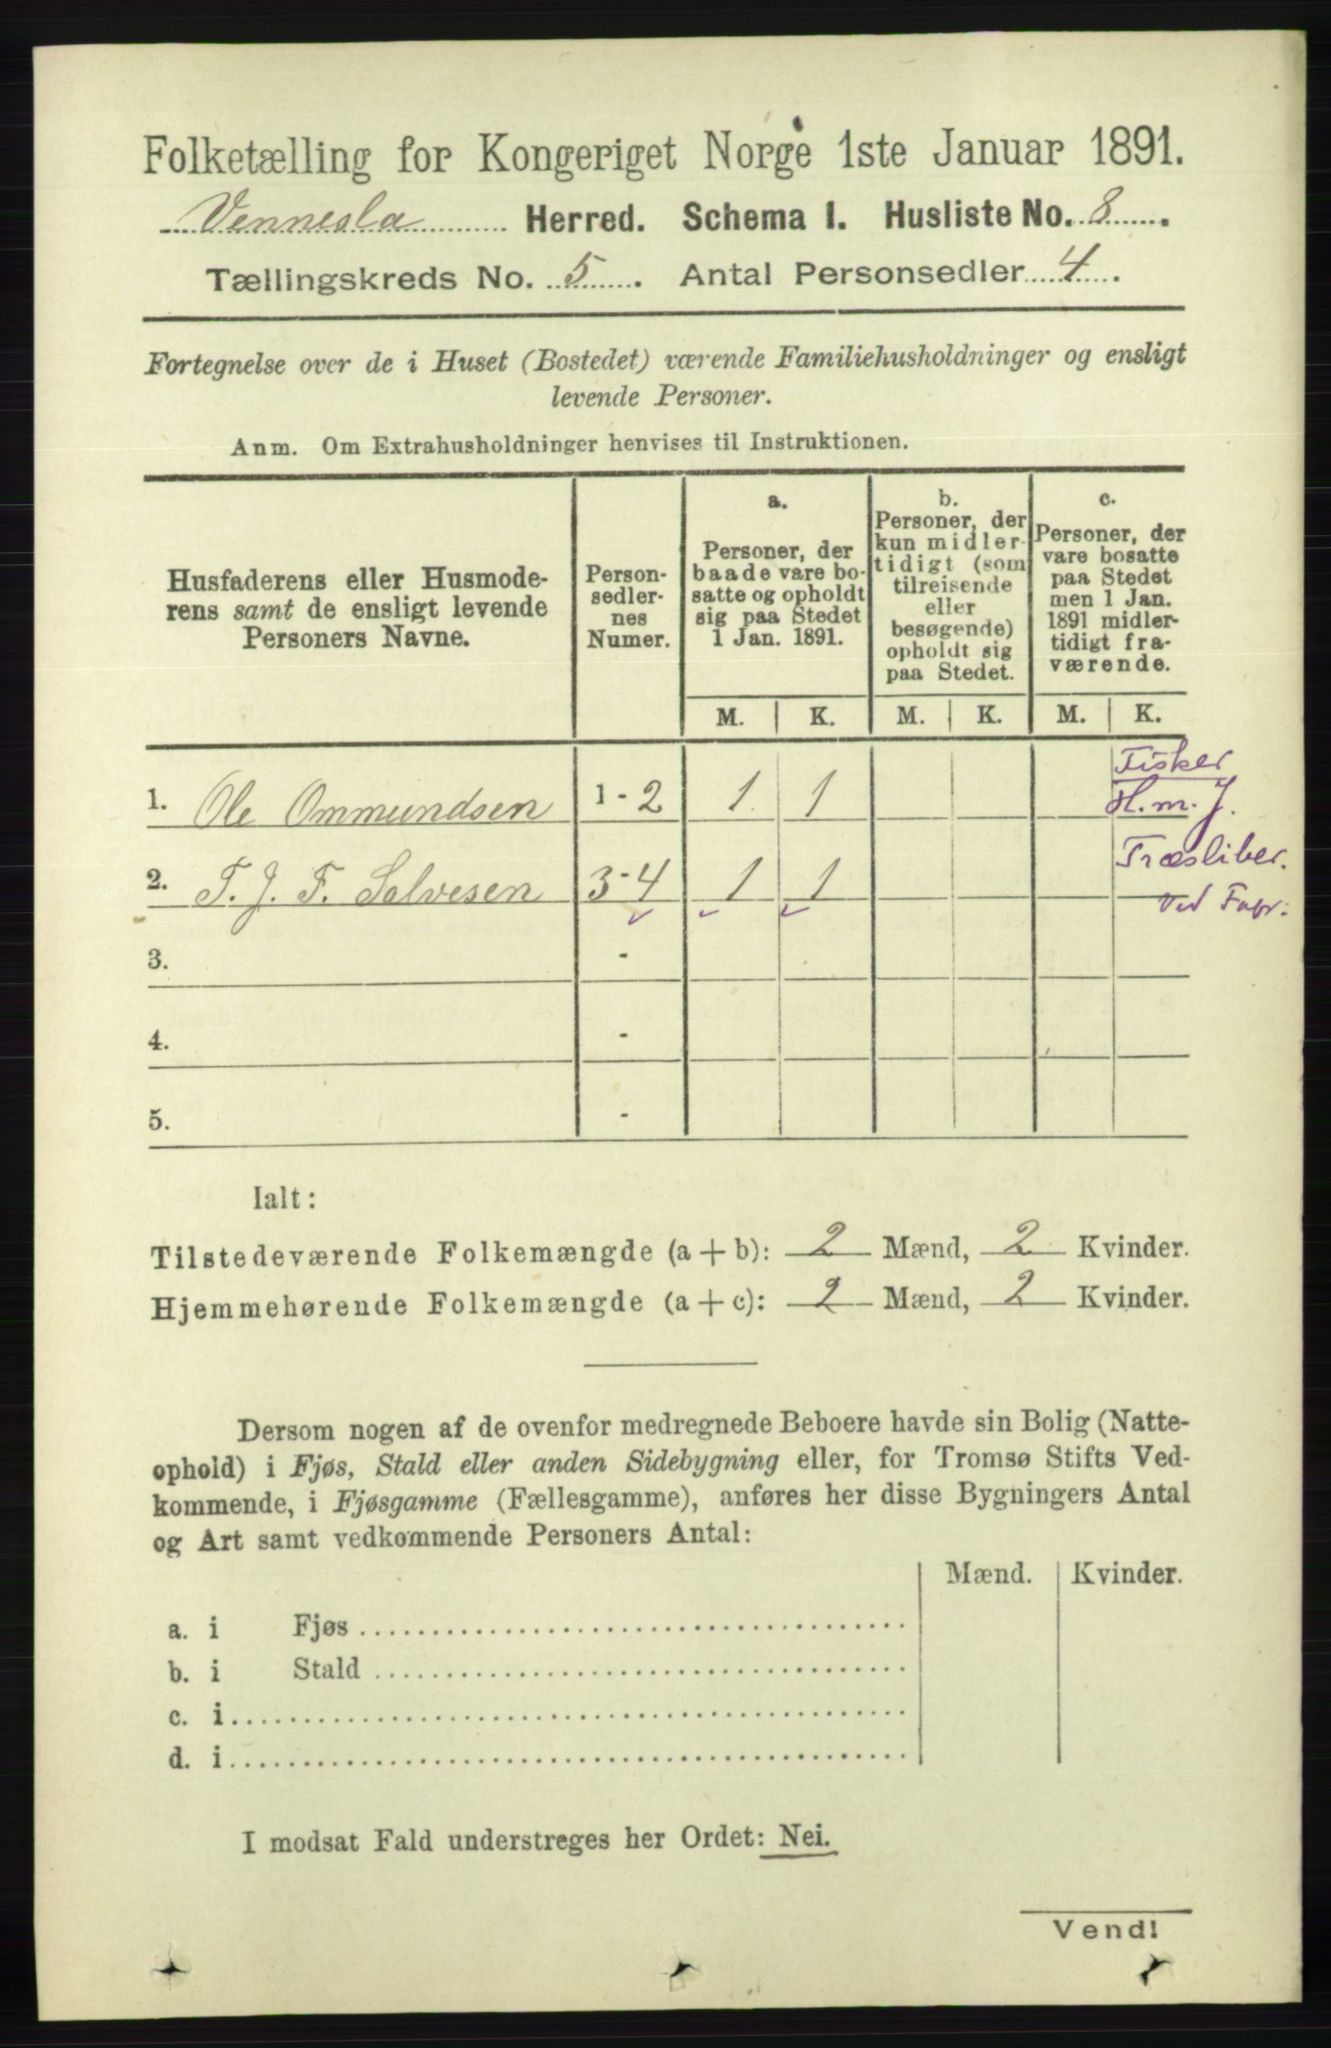 Folketælling for Kongeriget Norge 1ste Januar 1891.
Vennesla Herred. Schema I. Husliste No. 8.
Tællingskreds No. 5. Antal Personsedler 4.
Fortegnelse over de i Huset (Bostedet) værende Familiehusholdninger og ensligt
levende Personer.
Anm. Om Extrahusholdninger henvises til Instruktionen.
Husfaderens eller Husmode-
rens samt de ensligt levende
Personers Navne.
Person-
sedler-
nes
Numer.
a.
Personer, der
baade vare bo-
satte og opholdt
sig paa Stedet
1 Jan. 1891.
b.
Personer, der
kun midler-
tidigt (som
tilreisende
eller
besøgende)
opholdt sig
paa Stedet.
c.
Personer, der
vare bosatte
paa Stedet
men 1 Jan.
1891 midler-
tidigt fra-
værende.
M. K. M. K. M. K.
Fisker
1. Ole Ommundsen 1 - 2 1 1 H. m. J.
Træsliber.
2. T. J. F. Salvesen 3 - 4 1 1 ved Fabr.
3. -
4. -
5. -
Ialt:
Tilstedeværende Folkemængde (a + b): 2 Mænd, 2 Kvinder.
Hjemmehørende Folkemængde (a + c): 2 Mænd, 2 Kvinder.
Dersom nogen af de ovenfor medregnede Beboere havde sin Bolig (Natte-
ophold) i Fjøs, Stald eller anden Sidebygning eller, for Tromsø Stifts Ved-
kommende, i Fjøsgamme (Fællesgamme), anføres her disse Bygningers Antal
og Art samt vedkommende Personers Antal:
Mænd. Kvinder.
a. i Fjøs
b. i Stald
c. i
d. i
I modsat Fald understreges her Ordet: Nei.
Vend!